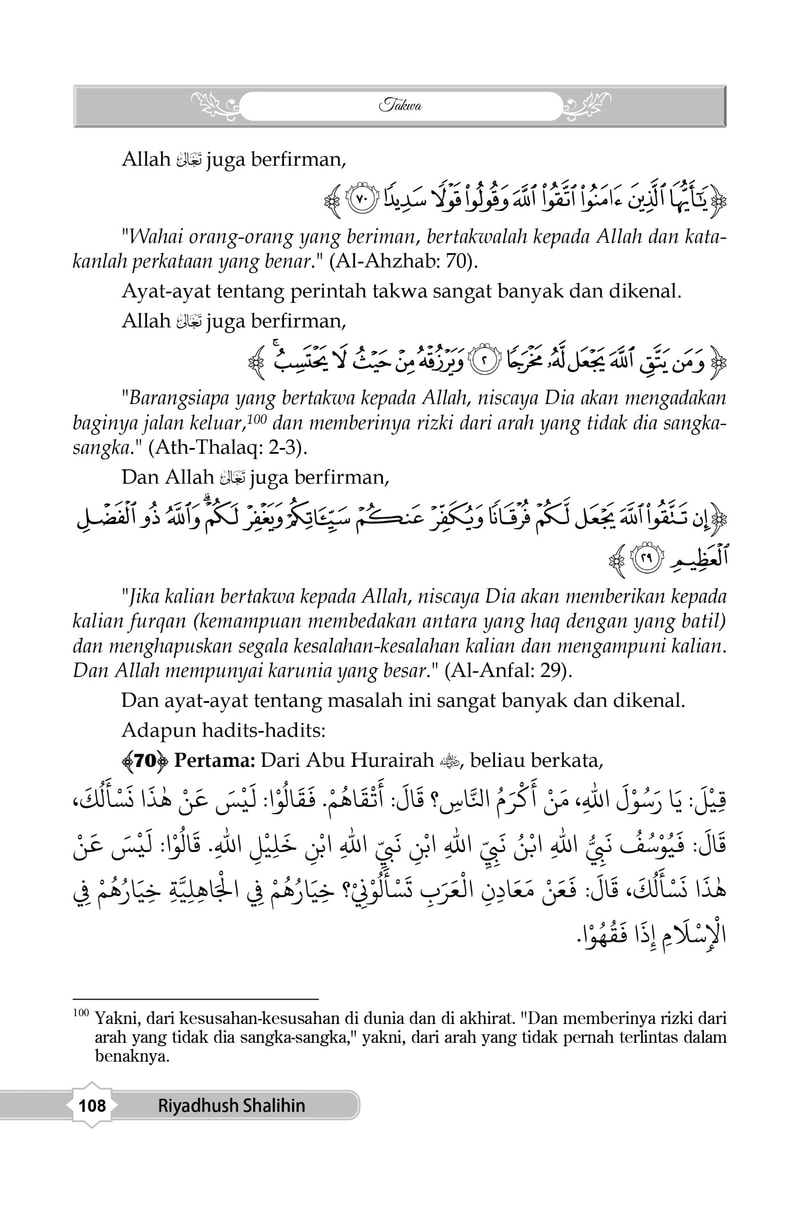 Takwa
Allah تَعَالَى juga berfirman,
﴿ يَـٰٓأَيُّهَا ٱلَّذِينَ ءَامَنُوا۟ ٱتَّقُوا۟ ٱللَّهَ وَقُولُوا۟ قَوْلًا سَدِيدًا ٧٠ ﴾
"Wahai orang-orang yang beriman, bertakwalah kepada Allah dan kata-
kanlah perkataan yang benar." (Al-Ahzhab: 70).
Ayat-ayat tentang perintah takwa sangat banyak dan dikenal.
Allah تَعَالَى juga berfirman,
﴿ وَمَن يَتَّقِ ٱللَّهَ يَجْعَل لَّهُۥ مَخْرَجًا ٢ وَيَرْزُقْهُ مِنْ حَيْثُ لَا يَحْتَسِبُ ۚ ﴾
"Barangsiapa yang bertakwa kepada Allah, niscaya Dia akan mengadakan
baginya jalan keluar,100 dan memberinya rizki dari arah yang tidak dia sangka-
sangka." (Ath-Thalaq: 2-3).
Dan Allah تَعَالَى juga berfirman,
﴿ إِن تَتَّقُوا۟ ٱللَّهَ يَجْعَل لَّكُمْ فُرْقَانًا وَيُكَفِّرْ عَنكُمْ سَيِّـَٔاتِكُمْ وَيَغْفِرْ لَكُمْ ۗ وَٱللَّهُ ذُو ٱلْفَضْلِ
ٱلْعَظِيمِ ٢٩ ﴾
"Jika kalian bertakwa kepada Allah, niscaya Dia akan memberikan kepada
kalian furqan (kemampuan membedakan antara yang haq dengan yang batil)
dan menghapuskan segala kesalahan-kesalahan kalian dan mengampuni kalian.
Dan Allah mempunyai karunia yang besar." (Al-Anfal: 29).
Dan ayat-ayat tentang masalah ini sangat banyak dan dikenal.
Adapun hadits-hadits:
﴾70﴿ Pertama: Dari Abu Hurairah ﵁, beliau berkata,
قِيْلَ: يَا رَسُوْلَ اللهِ، مَنْ أَكْرَمُ النَّاسِ؟ قَالَ: أَتْقَاهُمْ. فَقَالُوْا: لَيْسَ عَنْ هٰذَا نَسْأَلُكَ،
قَالَ: فَيُوْسُفُ نَبِيُّ اللهِ ابْنُ نَبِيِّ اللهِ ابْنِ نَبِيِّ اللهِ ابْنِ خَلِيْلِ اللهِ. قَالُوْا: لَيْسَ عَنْ
هٰذَا نَسْأَلُكَ، قَالَ: فَعَنْ مَعَادِنِ الْعَرَبِ تَسْأَلُوْنِيْ؟ خِيَارُهُمْ فِي الْجَاهِلِيَّةِ خِيَارُهُمْ فِي
الْإِسْلَامِ إِذَا فَقُهُوْا.
100 Yakni, dari kesusahan-kesusahan di dunia dan di akhirat. "Dan memberinya rizki dari
arah yang tidak dia sangka-sangka," yakni, dari arah yang tidak pernah terlintas dalam
benaknya.
108 Riyadhush Shalihin